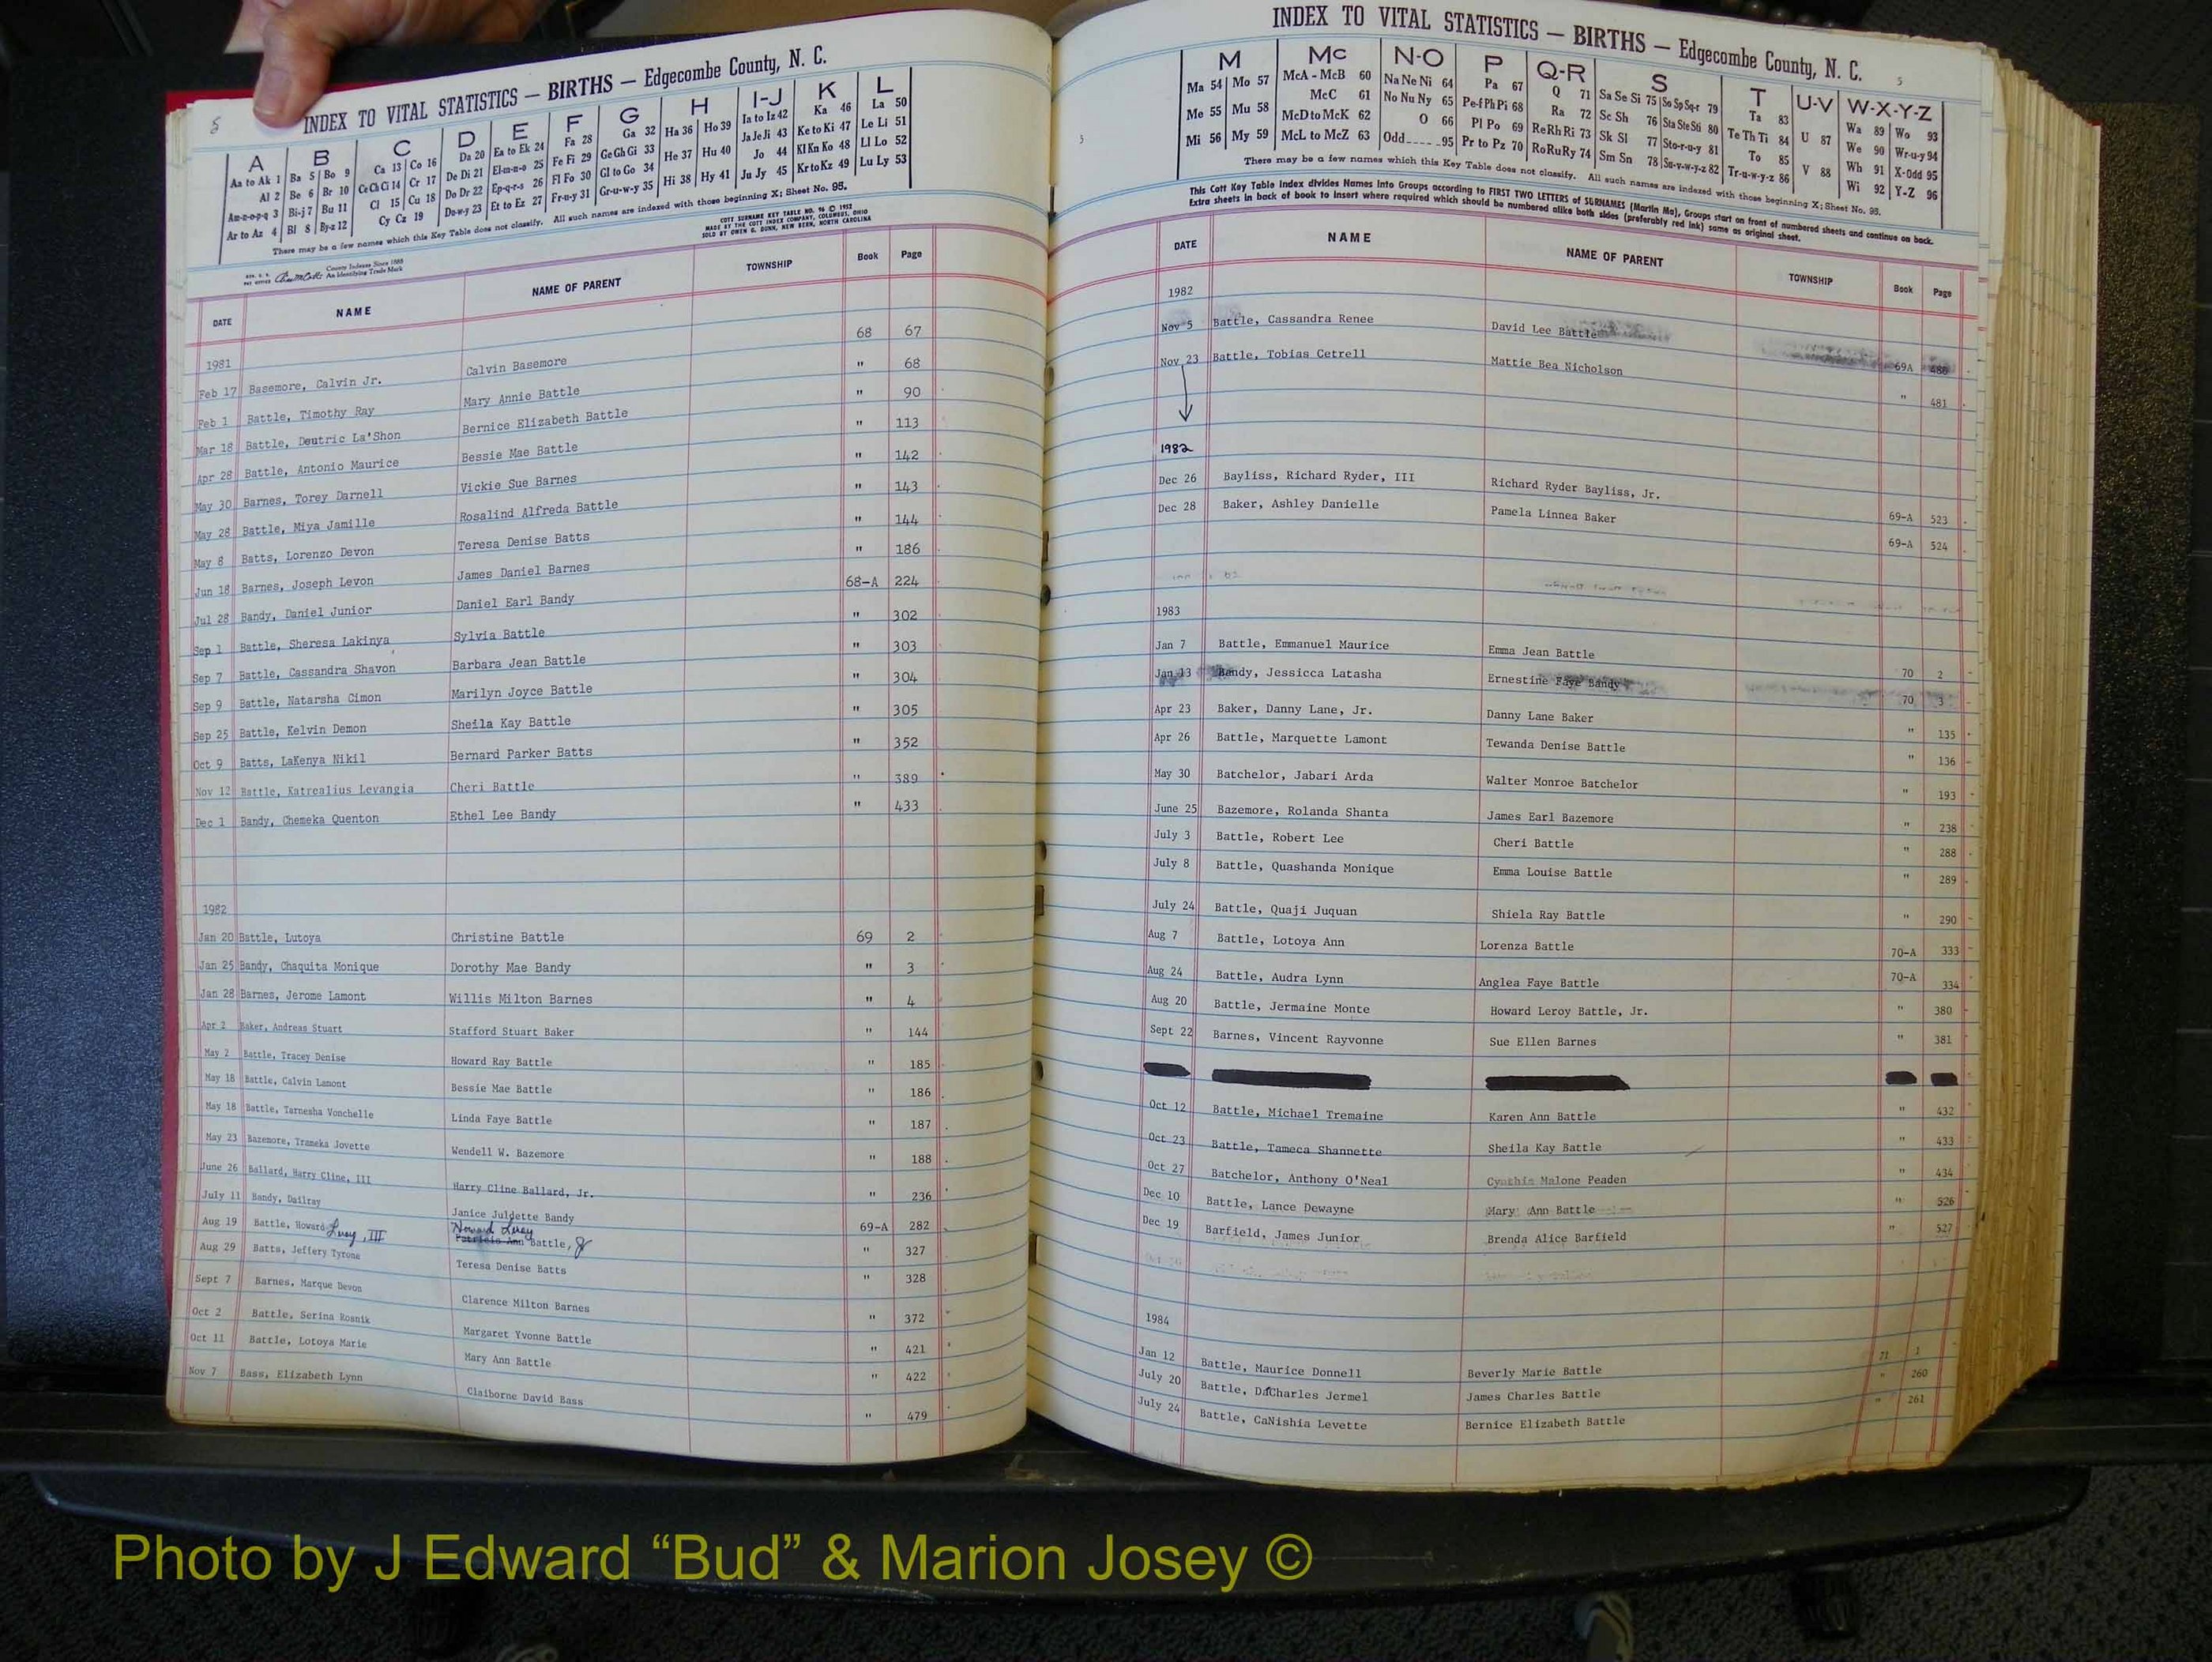 5
INDEX TO VITAL STATISTICS — BIRTHS — Edgecombe County, N. C.
A B C D E F G H I-J K L
Aa to Ak 1 Ba 5 Bo 9 Ca 13 Co 16 Da 20 Ea to Ek 24 Fa 28 Ga 32 Ha 36 Ho 39 Ia to Iz 42 Ka 46 La 50
Al 2 Be 6 Br 10 Ce Ch Ci 14 Cr 17 De Di 21 El-m-n-o 25 Fe Fi 29 Ge Gh Gi 33 He 37 Hu 40 Ja Je Ji 43 Ke to Ki 47 Le Li 51
Am-n-o-p-q 3 Bi-j 7 Bu 11 Cl 15 Cu 18 Do Dr 22 Ep-q-r-s 26 Fl Fo 30 Gl to Go 34 Hi 38 Hy 41 Jo 44 Kl Kn Ko 48 Ll Lo 52
Ar to Az 4 Bl 8 By-z 12 Cy Cz 19 Du-w-y 23 Et to Ez 27 Fr-u-y 31 Gr-u-w-y 35 Ju Jy 45 Kr to Kz 49 Lu Ly 53
There may be a few names which this Key Table does not classify. All such names are indexed with those beginning X; Sheet No. 95.
COTT SURNAME KEY TABLE NO. 96 © 1952
MADE BY THE COTT INDEX COMPANY, COLUMBUS, OHIO
SOLD BY OWEN G. DUNN, NEW BERN, NORTH CAROLINA
County Indexes Since 1888
An Identifying Trade Mark
DATE NAME NAME OF PARENT TOWNSHIP Book Page
1981
Feb 17 Basemore, Calvin Jr. Calvin Basemore 68 67
Feb 1 Battle, Timothy Ray Mary Annie Battle " 68
Mar 18 Battle, Deutric La'Shon Bernice Elizabeth Battle " 90
Apr 28 Battle, Antonio Maurice Bessie Mae Battle " 113
May 30 Barnes, Torey Darnell Vickie Sue Barnes " 142
May 28 Battle, Miya Jamille Rosalind Alfreda Battle " 143
May 8 Batts, Lorenzo Devon Teresa Denise Batts " 144
Jun 18 Barnes, Joseph Levon James Daniel Barnes " 186
Jul 28 Bandy, Daniel Junior Daniel Earl Bandy 68-A 224
Sep 1 Battle, Sheresa Lakinya Sylvia Battle " 302
Sep 7 Battle, Cassandra Shavon Barbara Jean Battle " 303
Sep 9 Battle, Natarsha Cimon Marilyn Joyce Battle " 304
Sep 25 Battle, Kelvin Demon Sheila Kay Battle " 305
Oct 9 Batts, LaKenya Nikil Bernard Parker Batts " 352
Nov 12 Battle, Katrealius Levangia Cheri Battle " 389
Dec 1 Bandy, Chemeka Quenton Ethel Lee Bandy " 433
1982
Jan 20 Battle, Lutoya Christine Battle 69 2
Jan 25 Bandy, Chaquita Monique Dorothy Mae Bandy " 3
Jan 28 Barnes, Jerome Lamont Willis Milton Barnes " 4
Apr 2 Baker, Andreas Stuart Stafford Stuart Baker " 144
May 2 Battle, Tracey Denise Howard Ray Battle " 185
May 18 Battle, Calvin Lamont Bessie Mae Battle " 186
May 18 Battle, Tarnesha Vonchelle Linda Faye Battle " 187
May 23 Bazemore, Trameka Jovette Wendell W. Bazemore " 188
June 26 Ballard, Harry Cline, III Harry Cline Ballard, Jr. " 236
July 11 Bandy, Dailray Janice Juldette Bandy 69-A 282
Aug 19 Battle, Howard Leroy, III Howard Leroy Patricia Ann Battle, Jr " 327
Aug 29 Batts, Jeffery Tyrone Teresa Denise Batts " 328
Sept 7 Barnes, Marque Devon Clarence Milton Barnes " 372
Oct 2 Battle, Serina Rosnik Margaret Yvonne Battle " 421
Oct 11 Battle, Lotoya Marie Mary Ann Battle " 422
Nov 7 Bass, Elizabeth Lynn Claiborne David Bass " 479
5
INDEX TO VITAL STATISTICS — BIRTHS — Edgecombe County, N. C.
M Mc N-O P Q-R S T U-V W-X-Y-Z
Ma 54 Mo 57 McA - McB 60 Na Ne Ni 64 Pa 67 Q 71 Sa Se Si 75 So Sp Sq-r 79 Ta 83 U 87 Wa 89 Wo 93
Me 55 Mu 58 McC 61 No Nu Ny 65 Pe-f Ph Pi 68 Ra 72 Sc Sh 76 Sta Ste Sti 80 Te Th Ti 84 V 88 We 90 Wr-u-y 94
Mi 56 My 59 McD to McK 62 O 66 Pl Po 69 Re Rh Ri 73 Sk Sl 77 Sto-r-u-y 81 To 85 Wh 91 X-Odd 95
McL to McZ 63 Odd 95 Pr to Pz 70 Ro Ru Ry 74 Sm Sn 78 Su-v-w-y-z 82 Tr-u-w-y-z 86 Wi 92 Y-Z 96
There may be a few names which this Key Table does not classify. All such names are indexed with those beginning X; Sheet No. 95.
This Cott Key Table Index divides Names into Groups according to FIRST TWO LETTERS of SURNAMES (Martin Ma), Groups start on front of numbered sheets and continue on back.
Extra sheets in back of book to insert where required which should be numbered alike both sides (preferably red ink) same as original sheet.
DATE NAME NAME OF PARENT TOWNSHIP Book Page
1982
Nov 5 Battle, Cassandra Renee David Lee Battle 69A 480
Nov 23 Battle, Tobias Cetrell Mattie Bea Nicholson " 481
1982
Dec 26 Bayliss, Richard Ryder, III Richard Ryder Bayliss, Jr. 69-A 523
Dec 28 Baker, Ashley Danielle Pamela Linnea Baker 69-A 524
1983
Jan 7 Battle, Emmanuel Maurice Emma Jean Battle 70 2
Jan 13 Bandy, Jessicca Latasha Ernestine Faye Bandy 70 3
Apr 23 Baker, Danny Lane, Jr. Danny Lane Baker " 135
Apr 26 Battle, Marquette Lamont Tewanda Denise Battle " 136
May 30 Batchelor, Jabari Arda Walter Monroe Batchelor " 193
June 25 Bazemore, Rolanda Shanta James Earl Bazemore " 238
July 3 Battle, Robert Lee Cheri Battle " 288
July 8 Battle, Quashanda Monique Emma Louise Battle " 289
July 24 Battle, Quaji Juquan Shiela Ray Battle " 290
Aug 7 Battle, Lotoya Ann Lorenza Battle 70-A 333
Aug 24 Battle, Audra Lynn Anglea Faye Battle 70-A 334
Aug 20 Battle, Jermaine Monte Howard Leroy Battle, Jr. " 380
Sept 22 Barnes, Vincent Rayvonne Sue Ellen Barnes " 381
Oct 12 Battle, Michael Tremaine Karen Ann Battle " 432
Oct 23 Battle, Tameca Shannette Sheila Kay Battle " 433
Oct 27 Batchelor, Anthony O'Neal Cynthia Malone Peaden " 434
Dec 10 Battle, Lance Dewayne Mary Ann Battle " 526
Dec 19 Barfield, James Junior Brenda Alice Barfield " 527
1984
Jan 12 Battle, Maurice Donnell Beverly Marie Battle 71 1
July 20 Battle, DaCharles Jermel James Charles Battle " 260
July 24 Battle, CaNishia Levette Bernice Elizabeth Battle " 261
Photo by J Edward “Bud” & Marion Josey ©